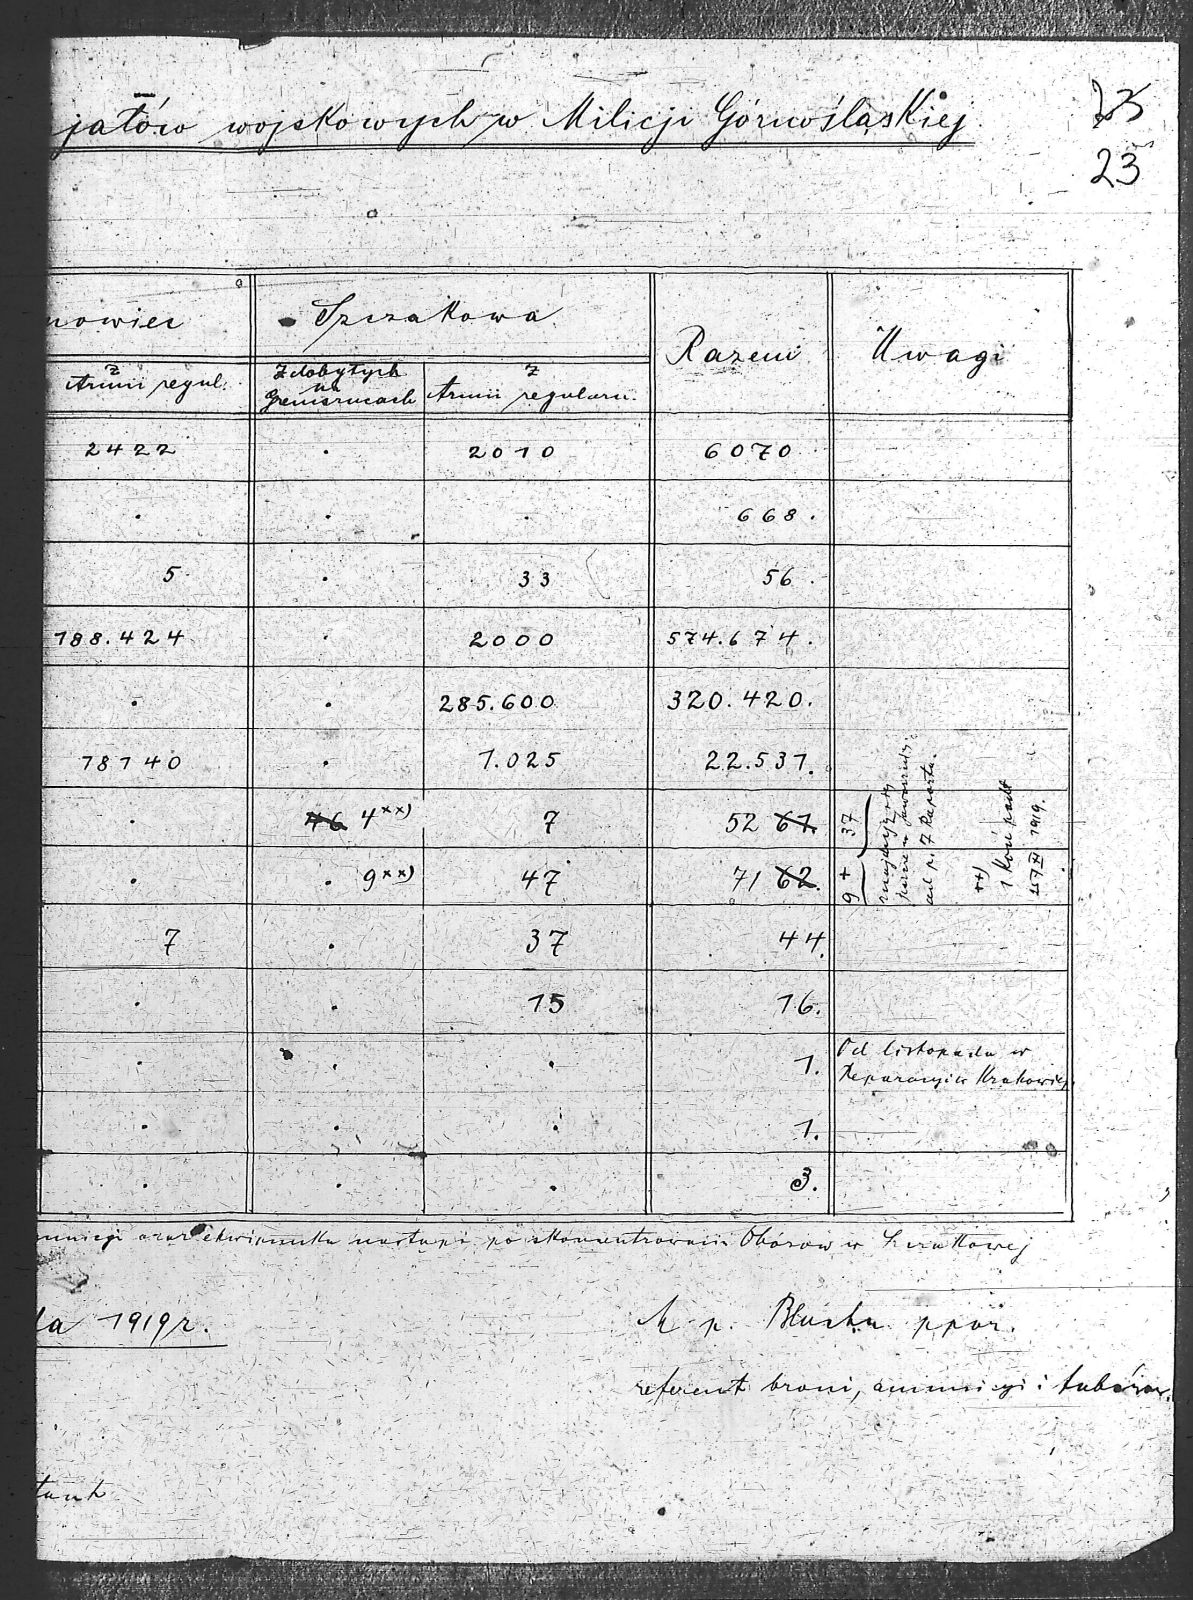 jałów wojskowych w Milicji Górnośląskiej
23
nowiec Szczakowa Razem Uwagi
z Armii regul. Zdobytych na Grenszucach z Armii regularn.
2422 . 2010 6070
. . . 668.
5 . 33 56.
188.424 . 2000 574.674.
. . 285.600 320.420.
18140 . 1.025 22.531.
. 4xx) 7 52 37
. 9xx) 47 71 9+
ad p. 7 Raportu.
1 Koń padł
1919.
7 . 37 44.
. . 15 16.
. . . 1. Od listopada w
Reparacyi w Krakowie.
. . . 1.
. . . 3.
amunicyi oraz ekwipunku nastąpi po skoncentrowaniu Obozów w Szczakowej
da 1919 r.
M p. Błucha ppor.
referent broni, amunicyi i taborów.